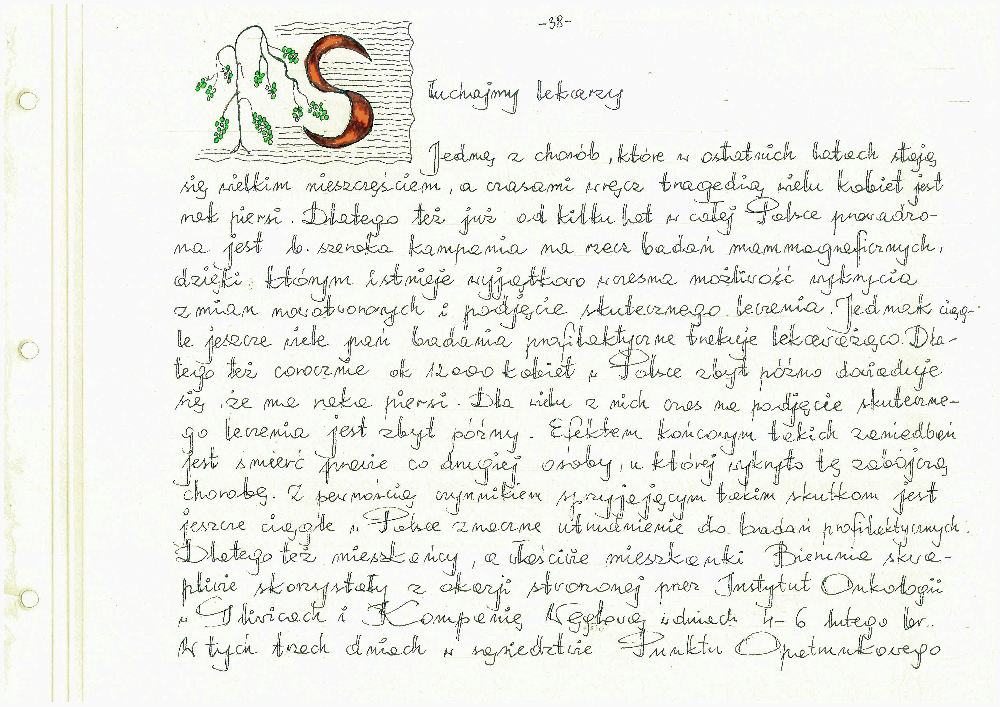 -38-
Słuchajmy lekarzy
Jedną z chorób, które w ostatnich latach stają
się wielkim nieszczęściem, a czasami wręcz tragedią wielu kobiet jest
rak piersi. Dlatego też już od kilku lat w całej Polsce prowadzo-
na jest b. szeroka kampania na rzecz badań mammograficznych,
dzięki którym istnieje wyjątkowo wczesna możliwość wykrycia
zmian nowotworowych i podjęcie skutecznego leczenia. Jednak ciąg-
le jeszcze wiele pań badania profilaktyczne traktuje lekceważąco. Dla-
tego też corocznie ok 12000 kobiet w Polsce zbyt późno dowiaduje
się, że ma raka piersi. Dla wielu z nich czas na podjęcie skuteczne-
go leczenia jest zbyt późny. Efektem końcowym takich zaniedbań
jest śmierć prawie co drugiej osoby, u której wykryto tę zabójczą
chorobę. Z pewnością czynnikiem sprzyjającym takim skutkom jest
jeszcze ciągle w Polsce znaczne utrudnienie do badań profilaktycznych.
Dlatego też mieszkańcy, a właściwie mieszkanki Bierunia skwa-
pliwie skorzystały z okazji stworzonej przez Instytut Onkologii
w Gliwicach i Kompanię Węglową w dniach 4-6 lutego br.
W tych trzech dniach w sąsiedztwie Punktu Opatrunkowego